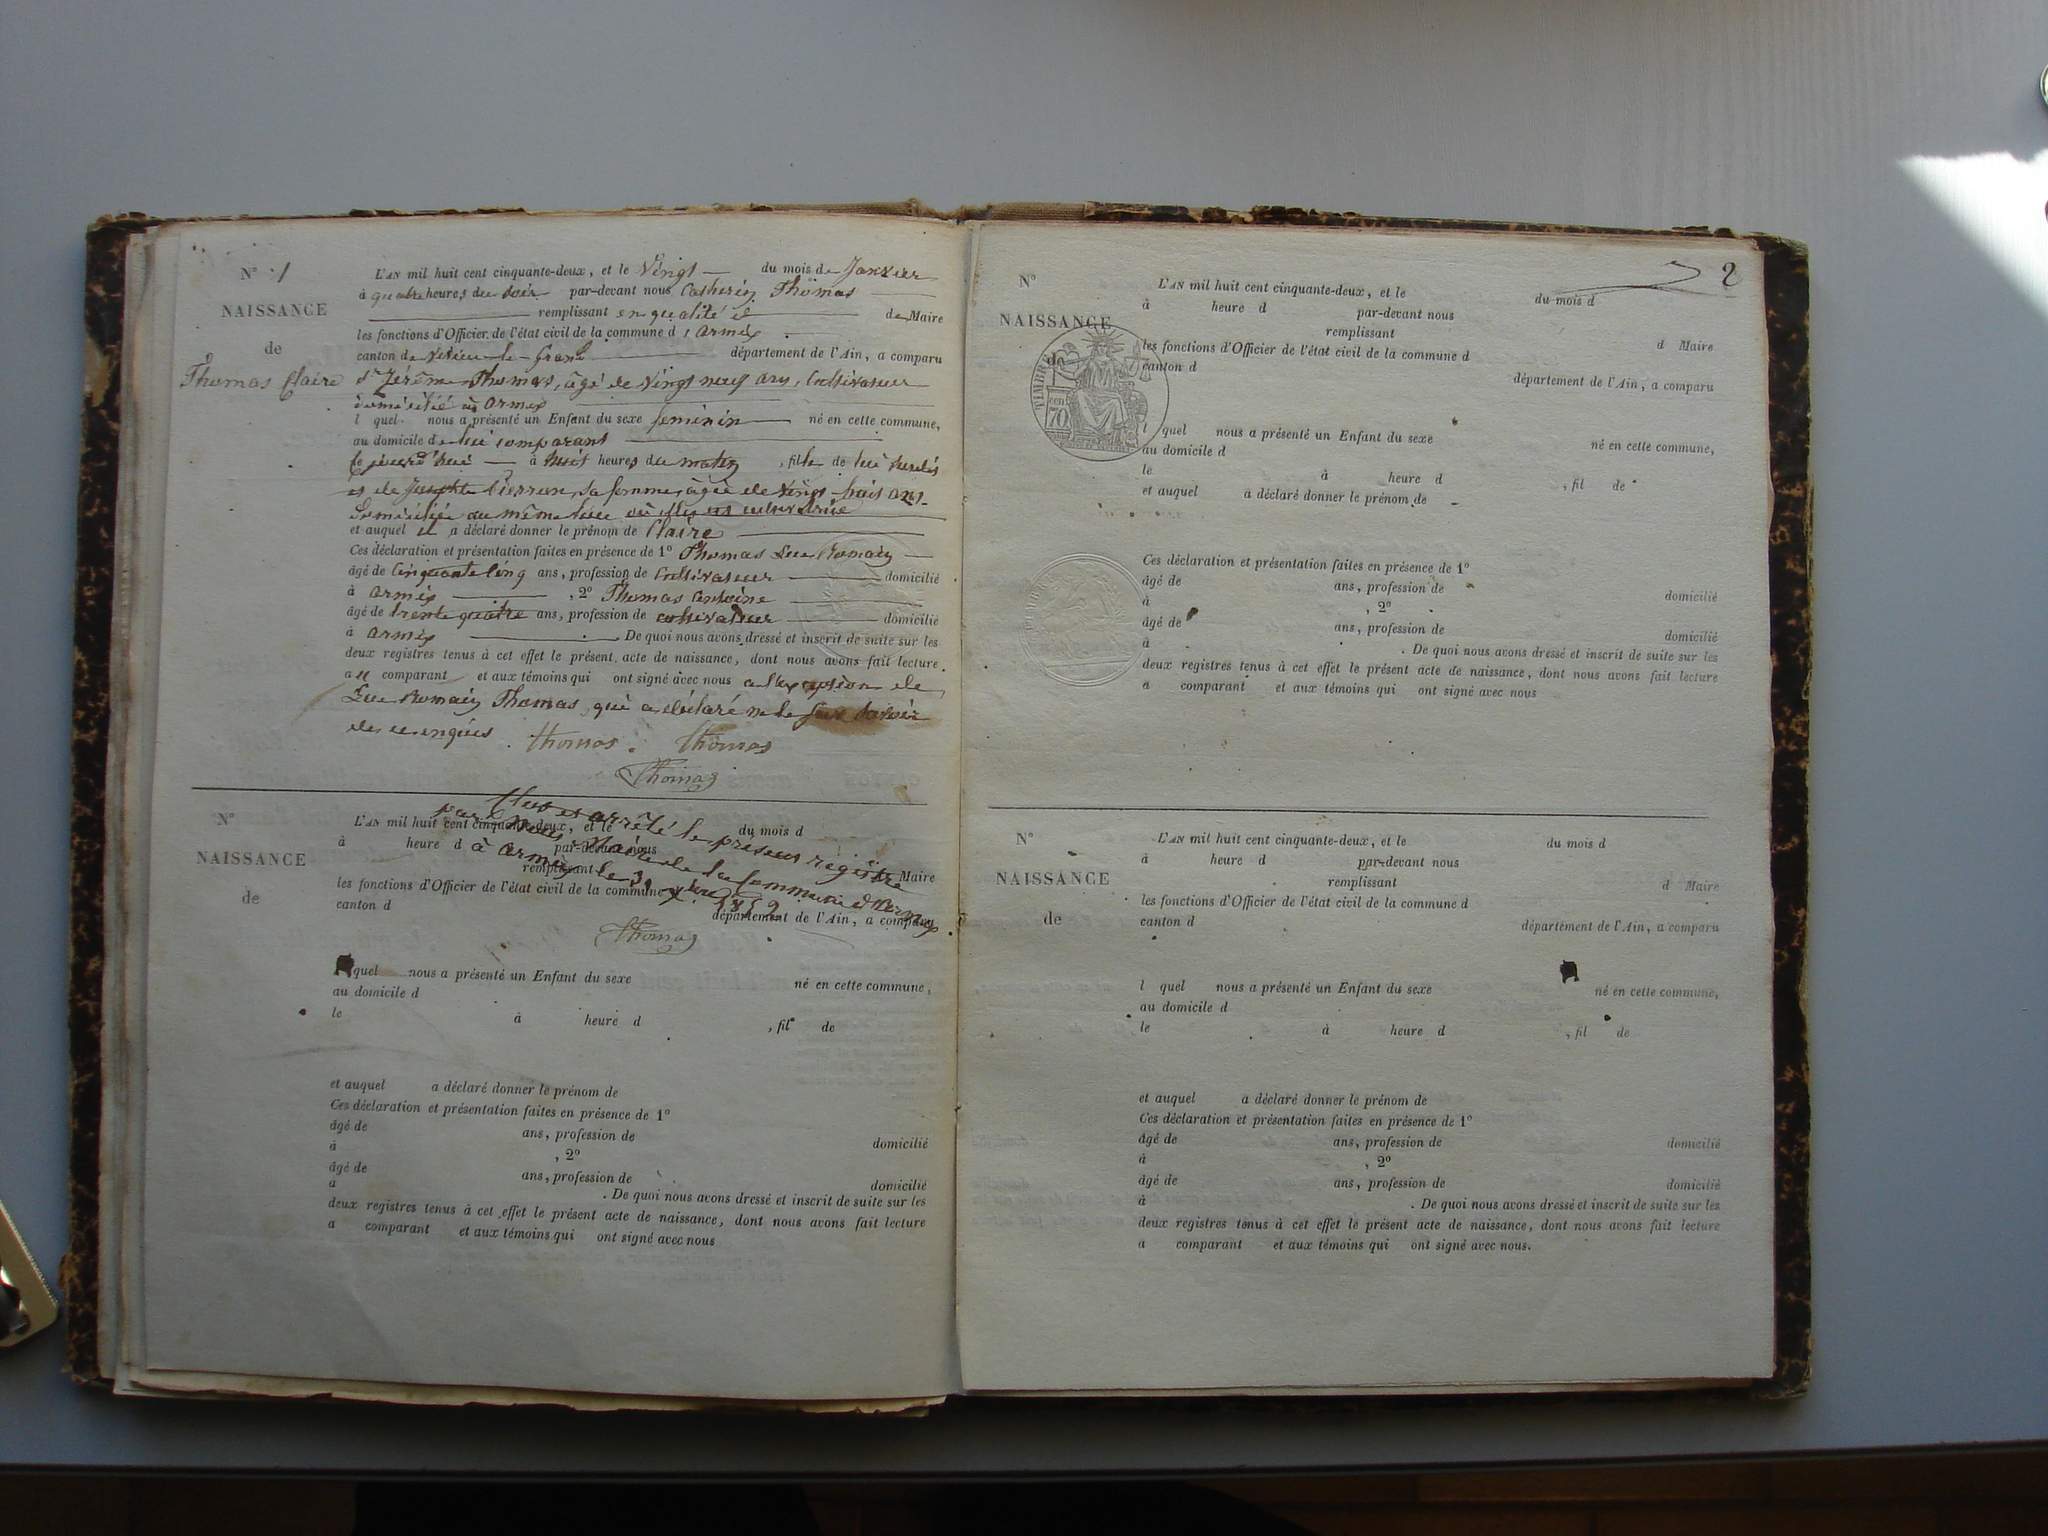 N° 1
NAISSANCE
de
Thomas Claire
L'AN mil huit cent cinquante-deux, et le Vingt du mois de Janvier
à quatre heures du soir par-devant nous Catherin Thomas
remplissant en qualité de Maire
les fonctions d'Officier de l'état civil de la commune d'Armix
canton de Virieu-le-Grand département de l'Ain, a comparu
Sr Jérôme Thomas, âgé de vingt neuf ans, Cultivateur
domicilié à Armix
lequel nous a présenté un Enfant du sexe feminin né en cette commune,
au domicile de lui comparant
le jourd'hui à huit heures du matin, fille de lui
et de Pierron, sa femme, âgée de vingt huit ans
domiciliée au même lieu où elle est cultivatrice
et auquel il a déclaré donner le prénom de Claire
Ces déclaration et présentation faites en présence de 1° Thomas Luc Romain
âgé de Cinquante Cinq ans, profession de Cultivateur domicilié
à Armix, 2° Thomas Antoine
âgé de trente quatre ans, profession de cultivateur domicilié
à Armix. De quoi nous avons dressé et inscrit de suite sur les
deux registres tenus à cet effet le présent acte de naissance, dont nous avons fait lecture
au comparant et aux témoins qui ont signé avec nous à l'exception de
Luc Romain Thomas, qui a déclaré ne le savoir
de ce enquis. Thomas. Thomas
Thomas
Clos et arrêté le présent registre
par Nous Maire de la Commune d'Armix
à Armix le 31 Xbre 1852
Thomas
N°
NAISSANCE
de
L'AN mil huit cent cinquante-deux, et le du mois d
à heure d par-devant nous
remplissant Maire
les fonctions d'Officier de l'état civil de la commune
canton d département de l'Ain, a comparu
quel nous a présenté un Enfant du sexe né en cette commune,
au domicile d
le à heure d , fil de
et auquel a déclaré donner le prénom de
Ces déclaration et présentation faites en présence de 1°
âgé de ans, profession de domicilié
à , 2°
âgé de ans, profession de domicilié
à . De quoi nous avons dressé et inscrit de suite sur les
deux registres tenus à cet effet le présent acte de naissance, dont nous avons fait lecture
a comparant et aux témoins qui ont signé avec nous
2
N°
NAISSANCE
de
TIMBRE
70 cen
L'AN mil huit cent cinquante-deux, et le du mois d
à heure d par-devant nous
remplissant d Maire
les fonctions d'Officier de l'état civil de la commune d
canton d département de l'Ain, a comparu
l quel nous a présenté un Enfant du sexe né en cette commune,
au domicile d
le à heure d , fil de
et auquel a déclaré donner le prénom de
Ces déclaration et présentation faites en présence de 1°
âgé de ans, profession de domicilié
à , 2°
âgé de ans, profession de domicilié
à . De quoi nous avons dressé et inscrit de suite sur les
deux registres tenus à cet effet le présent acte de naissance, dont nous avons fait lecture
a comparant et aux témoins qui ont signé avec nous
N°
NAISSANCE
de
L'AN mil huit cent cinquante-deux, et le du mois d
à heure d par-devant nous
remplissant d Maire
les fonctions d'Officier de l'état civil de la commune d
canton d département de l'Ain, a comparu
l quel nous a présenté un Enfant du sexe né en cette commune,
au domicile d
le à heure d , fil de
et auquel a déclaré donner le prénom de
Ces déclaration et présentation faites en présence de 1°
âgé de ans, profession de domicilié
à , 2°
âgé de ans, profession de domicilié
à . De quoi nous avons dressé et inscrit de suite sur les
deux registres tenus à cet effet le présent acte de naissance, dont nous avons fait lecture
a comparant et aux témoins qui ont signé avec nous.